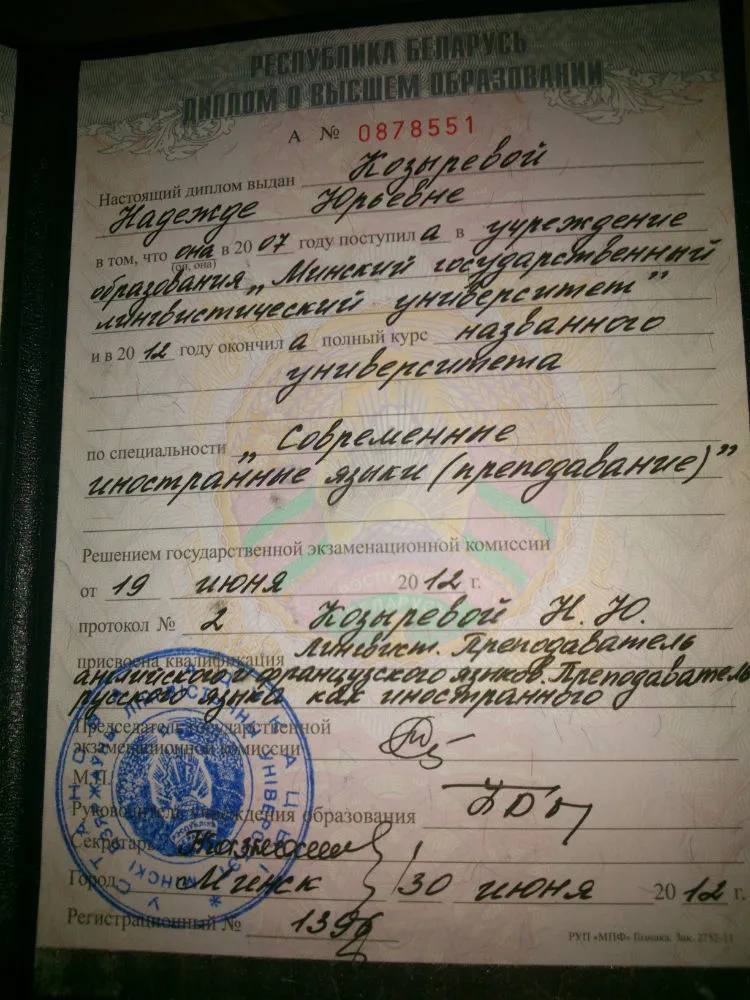 РЕСПУБЛИКА БЕЛАРУСЬ
ДИПЛОМ О ВЫСШЕМ ОБРАЗОВАНИИ
А № 0878551
Настоящий диплом выдан Козыревой
Надежде Юрьевне
в том, что она в 2007 году поступила в учреждение
(он, она)
образования „Минский государственный
лингвистический университет"
и в 2012 году окончила полный курс названного
университета
по специальности „Современные
иностранные языки (преподавание)"
Решением государственной экзаменационной комиссии
от 19 июня 2012 г.
протокол № 2 Козыревой Н. Ю.
присвоена квалификация Лингвист. Преподаватель
английского и французского языков. Преподаватель
русского языка как иностранного
Председатель государственной
экзаменационной комиссии
М.П.
Руководитель учреждения образования
Секретарь
Город Минск 30 июня 2012 г.
Регистрационный № 1396
РУП «МПФ» Гознака. Зак. 2752-11